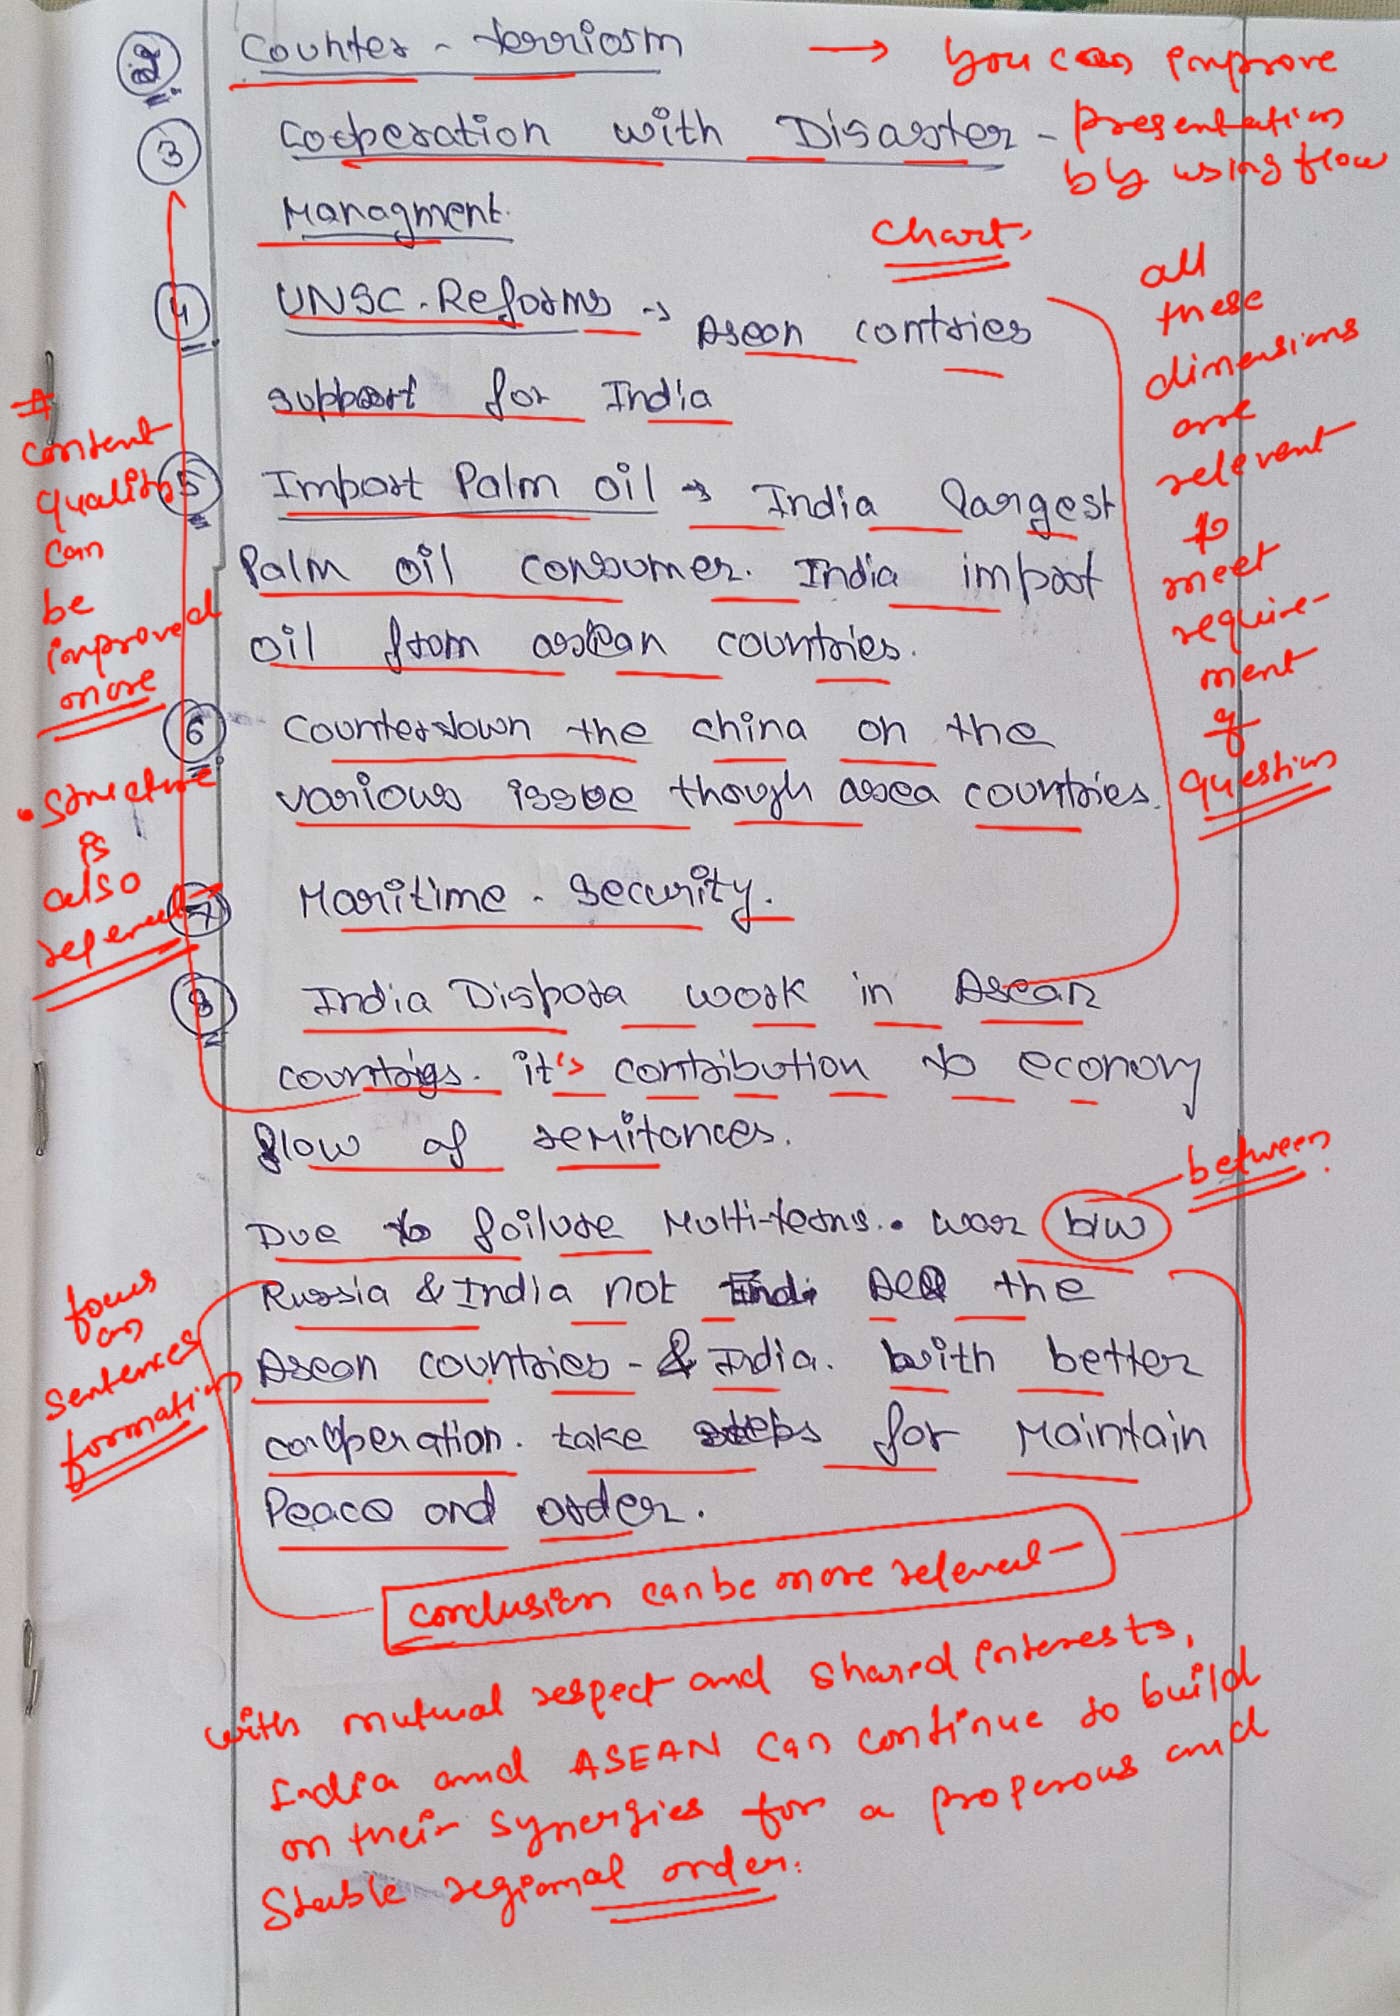 2 Counter - terriosm → you can improve
3 Cooperation with Disaster - presentation
by using flow
Managment.
chart.
4 UNSC. Reforms → Asean contries
support for India
all
these
dimensions
are
relevent
to
meet
require-
ment
of
question
#
content
quality
can
be
improved
more
• structure
is
also
relevent
5 Import Palm oil → India largest
Palm oil consumer. India import
oil from asean countries.
6 Counterdown the china on the
various issoe though asea countries.
7 Maritime - security.
8 India Dispora work in Asean
countries. it's contribution to economy
flow of remitances.
between
Due to failure Multi-terns.. war b/w
Russia & India not the
Asean countries - & India. with better
cooperation. take steps for Maintain
Peace and order.
focus
on
sentences
formation
conclusion can be more relevent -
with mutual respect and shared interests,
India and ASEAN can continue to build
on their synergies for a properous and
Stable regional order.